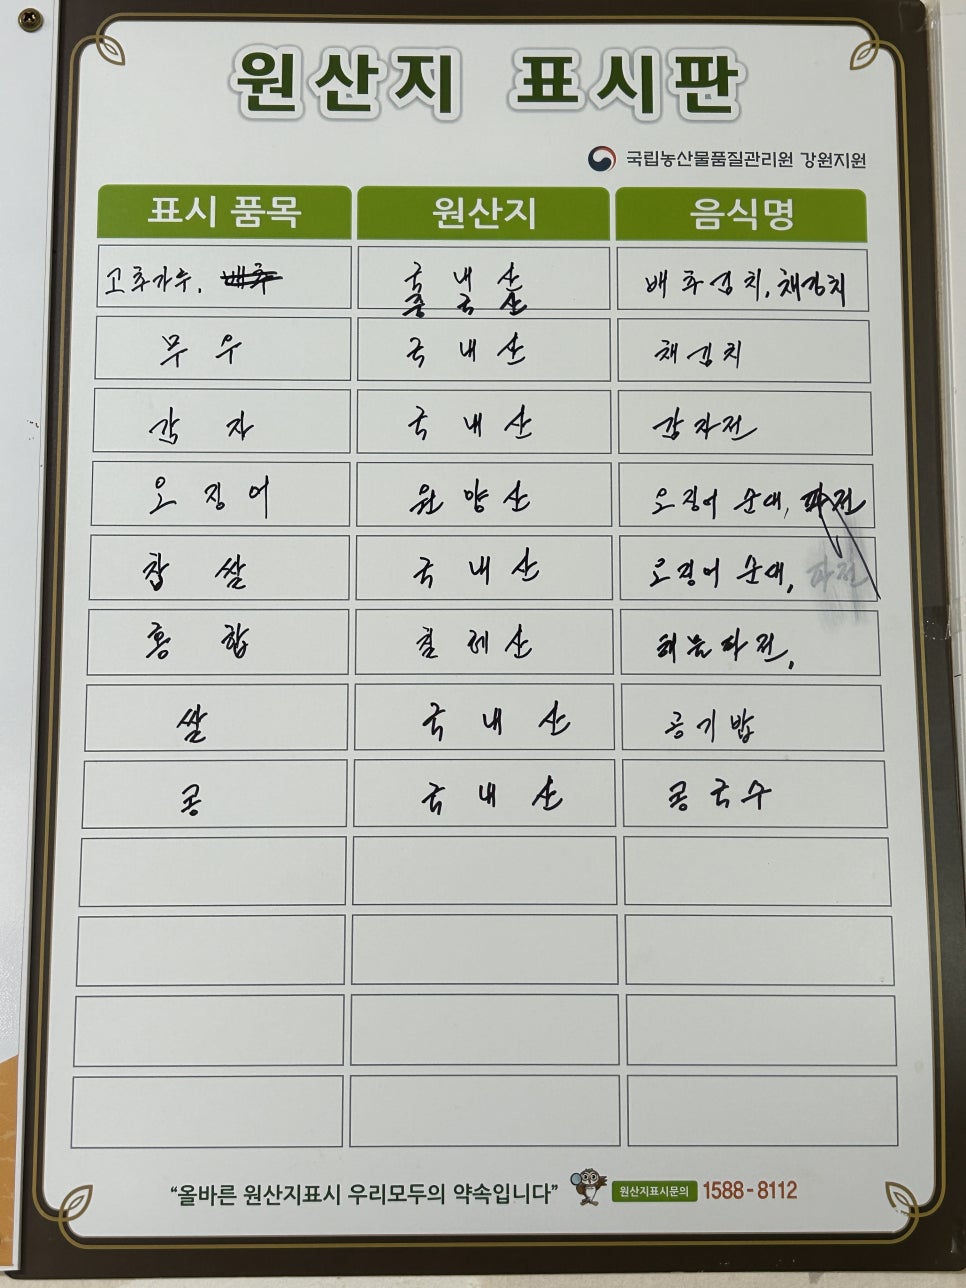 원산지 표시판
국립농산물품질관리원 강원지원
표시 품목 원산지 음식명
고추가루, 배추 국내산 배추김치, 채김치
중국산
무우 국내산 채김치
감자 국내산 감자전
오징어 원양산 오징어 순대, 파전
찹쌀 국내산 오징어 순대, 파전
홍합 칠레산 해물파전,
쌀 국내산 공기밥
콩 국내산 콩국수
“올바른 원산지표시 우리모두의 약속입니다” 원산지표시문의 1588-8112